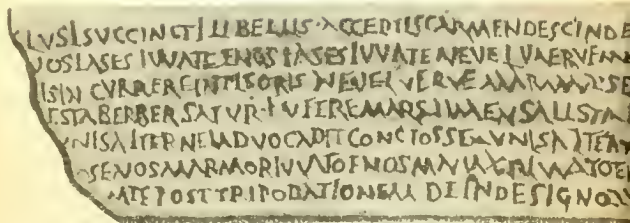 LVSI SVCCINCTI LIBELLIS · ACCEPTIS CARMEN DESCINDE
NOS LASES IVVATE ENOS LASES IVVATE NEVE LVAERVE MA
ISIN CVRRERE IN PLEORIS NEVE LVERVE MARMAR SE
ISTA BERBER SATVR · FVFERE MARS LIMEN SALI STA
VNIS ALTERNEI ADVOCAPIT CONCTOS SEMVNIS ALTER
ENOS MARMOR IVVATO ENOS MAMOR IVVATO E
MPE POST TRIPODATIONEM DEINDE SIGNO